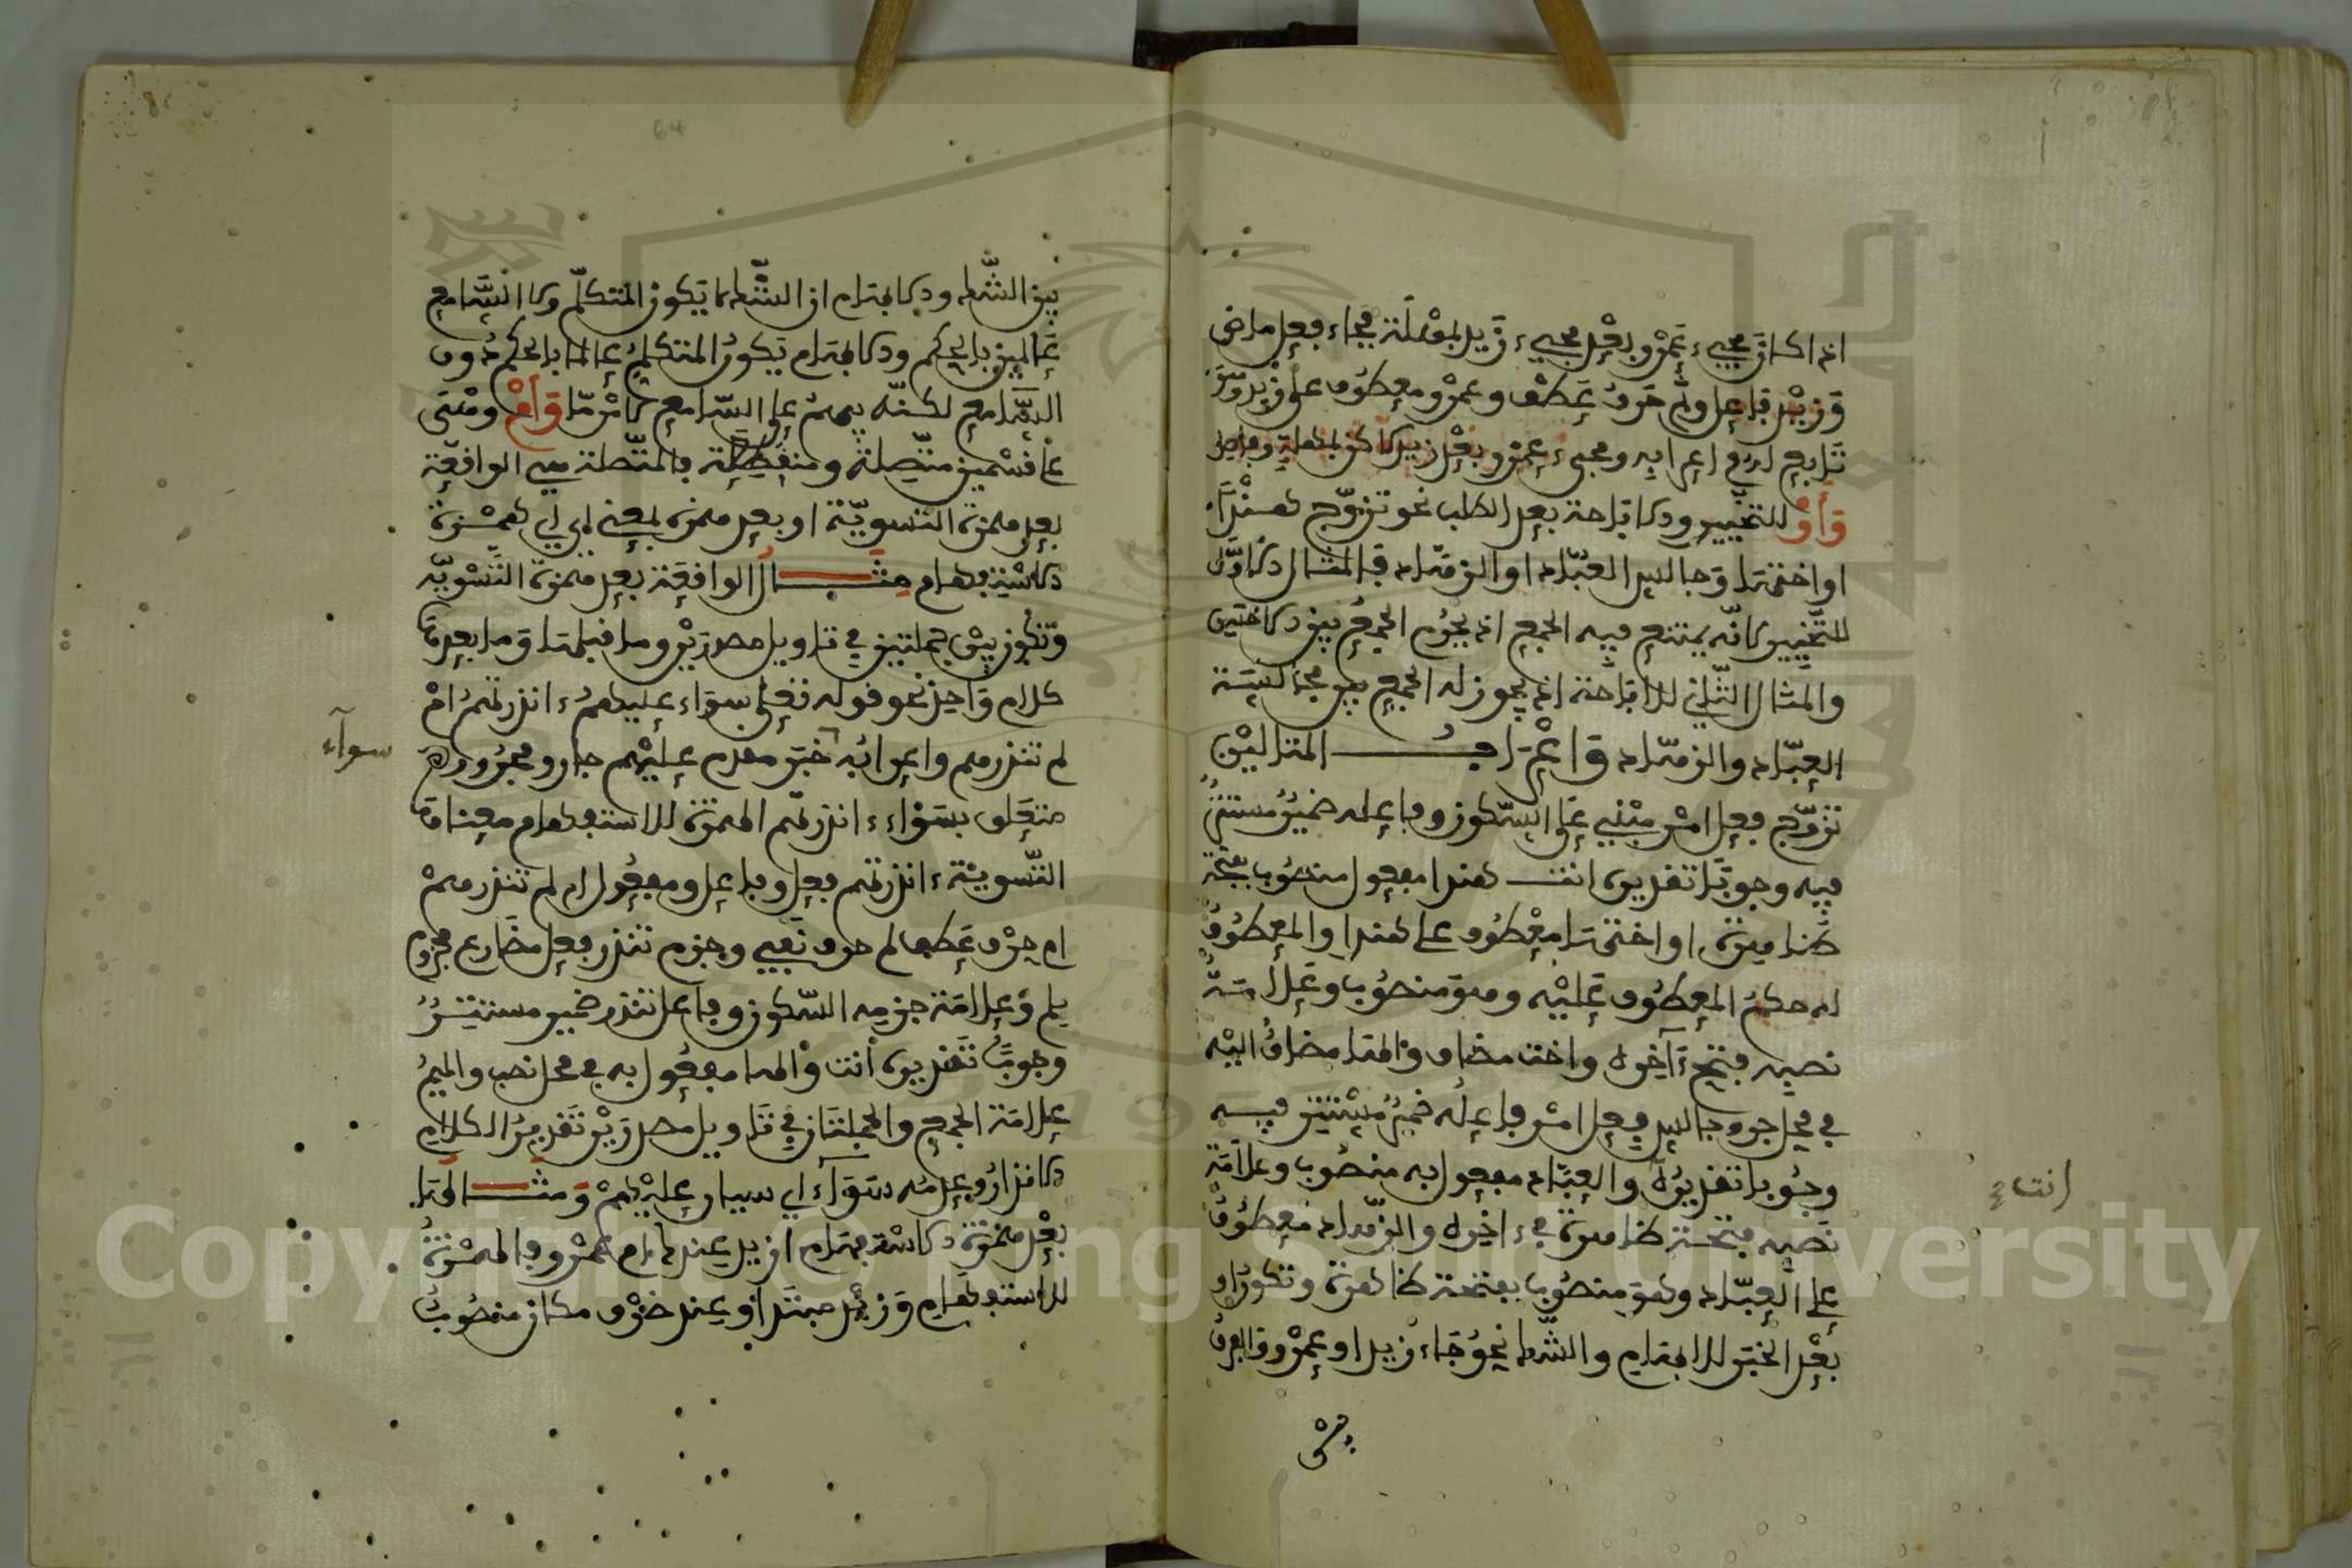 اذا كان مجيء عمرو بعد مجيء زيد بمهلة فجاء فعل ماض
وزيد فاعل وثم حرف عطف وعمرو معطوف على زيد وهو
تابع له في اعرابه ومجيء عمرو بعد زيد كائن بمهلة
وأو للتخيير والاباحة بعد الطلب نحو تزوج هندا
او اختها وجالس العباد او الزهاد فالمثال الاول
للتخيير لانه يمتنع فيه الجمع اذ يحرم الجمع بين الاختين
والمثال الثاني للاباحة اذ يجوز له الجمع بين مجالسة
العباد والزهاد واعراب المثالين
تزوج فعل امر مبني على السكون وفاعله ضمير مستتر
فيه وجوبا تقديره انت هندا مفعول منصوب بفتحة
ظاهرة او اختها معطوف على هندا والمعطوف
له حكم المعطوف عليه وهو منصوب وعلامة
نصبه فتح ءآخره واخت مضاف والهاء مضاف اليه
في محل جر وجالس فعل امر فاعله ضمير مستتر فيه
وجوبا تقديره والعباد مفعول به منصوب وعلامة
نصبه فتحة ظاهرة في ءاخره والزهاد معطوف
على العباد وهو منصوب بفتحة ظاهرة وتكون او
بعد الخبر للابهام والشك نحو جاء زيد او عمرو والفرق
بين
انت
64
بين الشك والابهام ان الشك لا يكون المتكلم ولا السامع
عالمين بالحكم والابهام يكون المتكلم عالما بالحكم دون
السامع لكنه يبهم على السامع لامر ما وأم وهي
على قسمين متصلة ومنفصلة فالمتصلة هي الواقعة
بعد همزة التسوية او بعد همزة بمعنى اي اي همزة
الاستفهام مثال الواقعة بعد همزة التسوية
وتكون بين جملتين في تاويل مصدر وما قبلها وما بعدها
كلام واحد نحو قوله تعلى سواء عليهم ءانذرتهم ام
لم تنذرهم واعرابه خبر مقدم عليهم جار ومجرور
متعلق بسواء ءانذرتهم الهمزة للاستفهام معناها
التسوية ءانذرتهم فعل وفاعل ومفعول ام لم تنذرهم
ام حرف عطف لم حرف نفي وجزم تنذر فعل مضارع مجزوم
بلم وعلامة جزمه السكون وفاعل تنذر ضمير مستتر
وجوبا تقديره أنت والها مفعول به في محل نصب والميم
علامة الجمع والجملتان في تاويل مصدر تقدير الكلام
الانذار وعدمه سواء اي سيان عليهم ومثالها
بعد همزة الاستفهام ازيد عندك ام عمرو فالهمزة
للاستفهام وزيد مبتدا وعند ظرف مكان منصوب
سوآء
Copyright © King Saud University